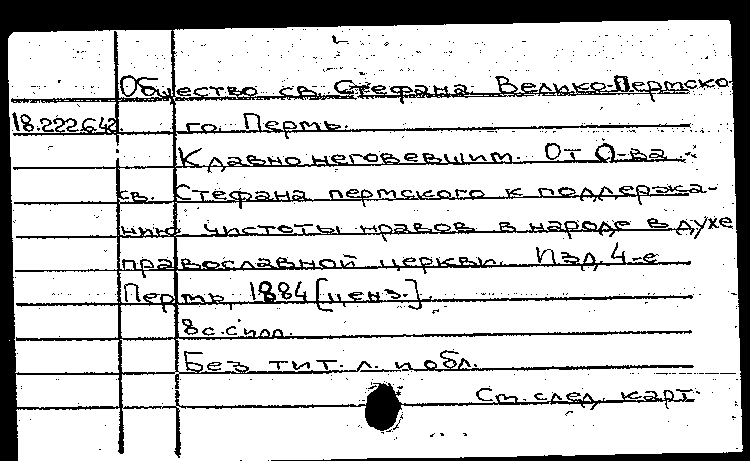 Общество св. Стефана Велико-Пермско-
18.222.642 го. Пермь.
К давно неговевшим. От О-ва
св. Стефана пермского к поддержа-
нию чистоты нравов в народе в духе
православной церкви. Изд. 4-е
Пермь, 1884 [ценз.].
8 с. с илл.
Без тит. л. и обл.
См. след. карт.